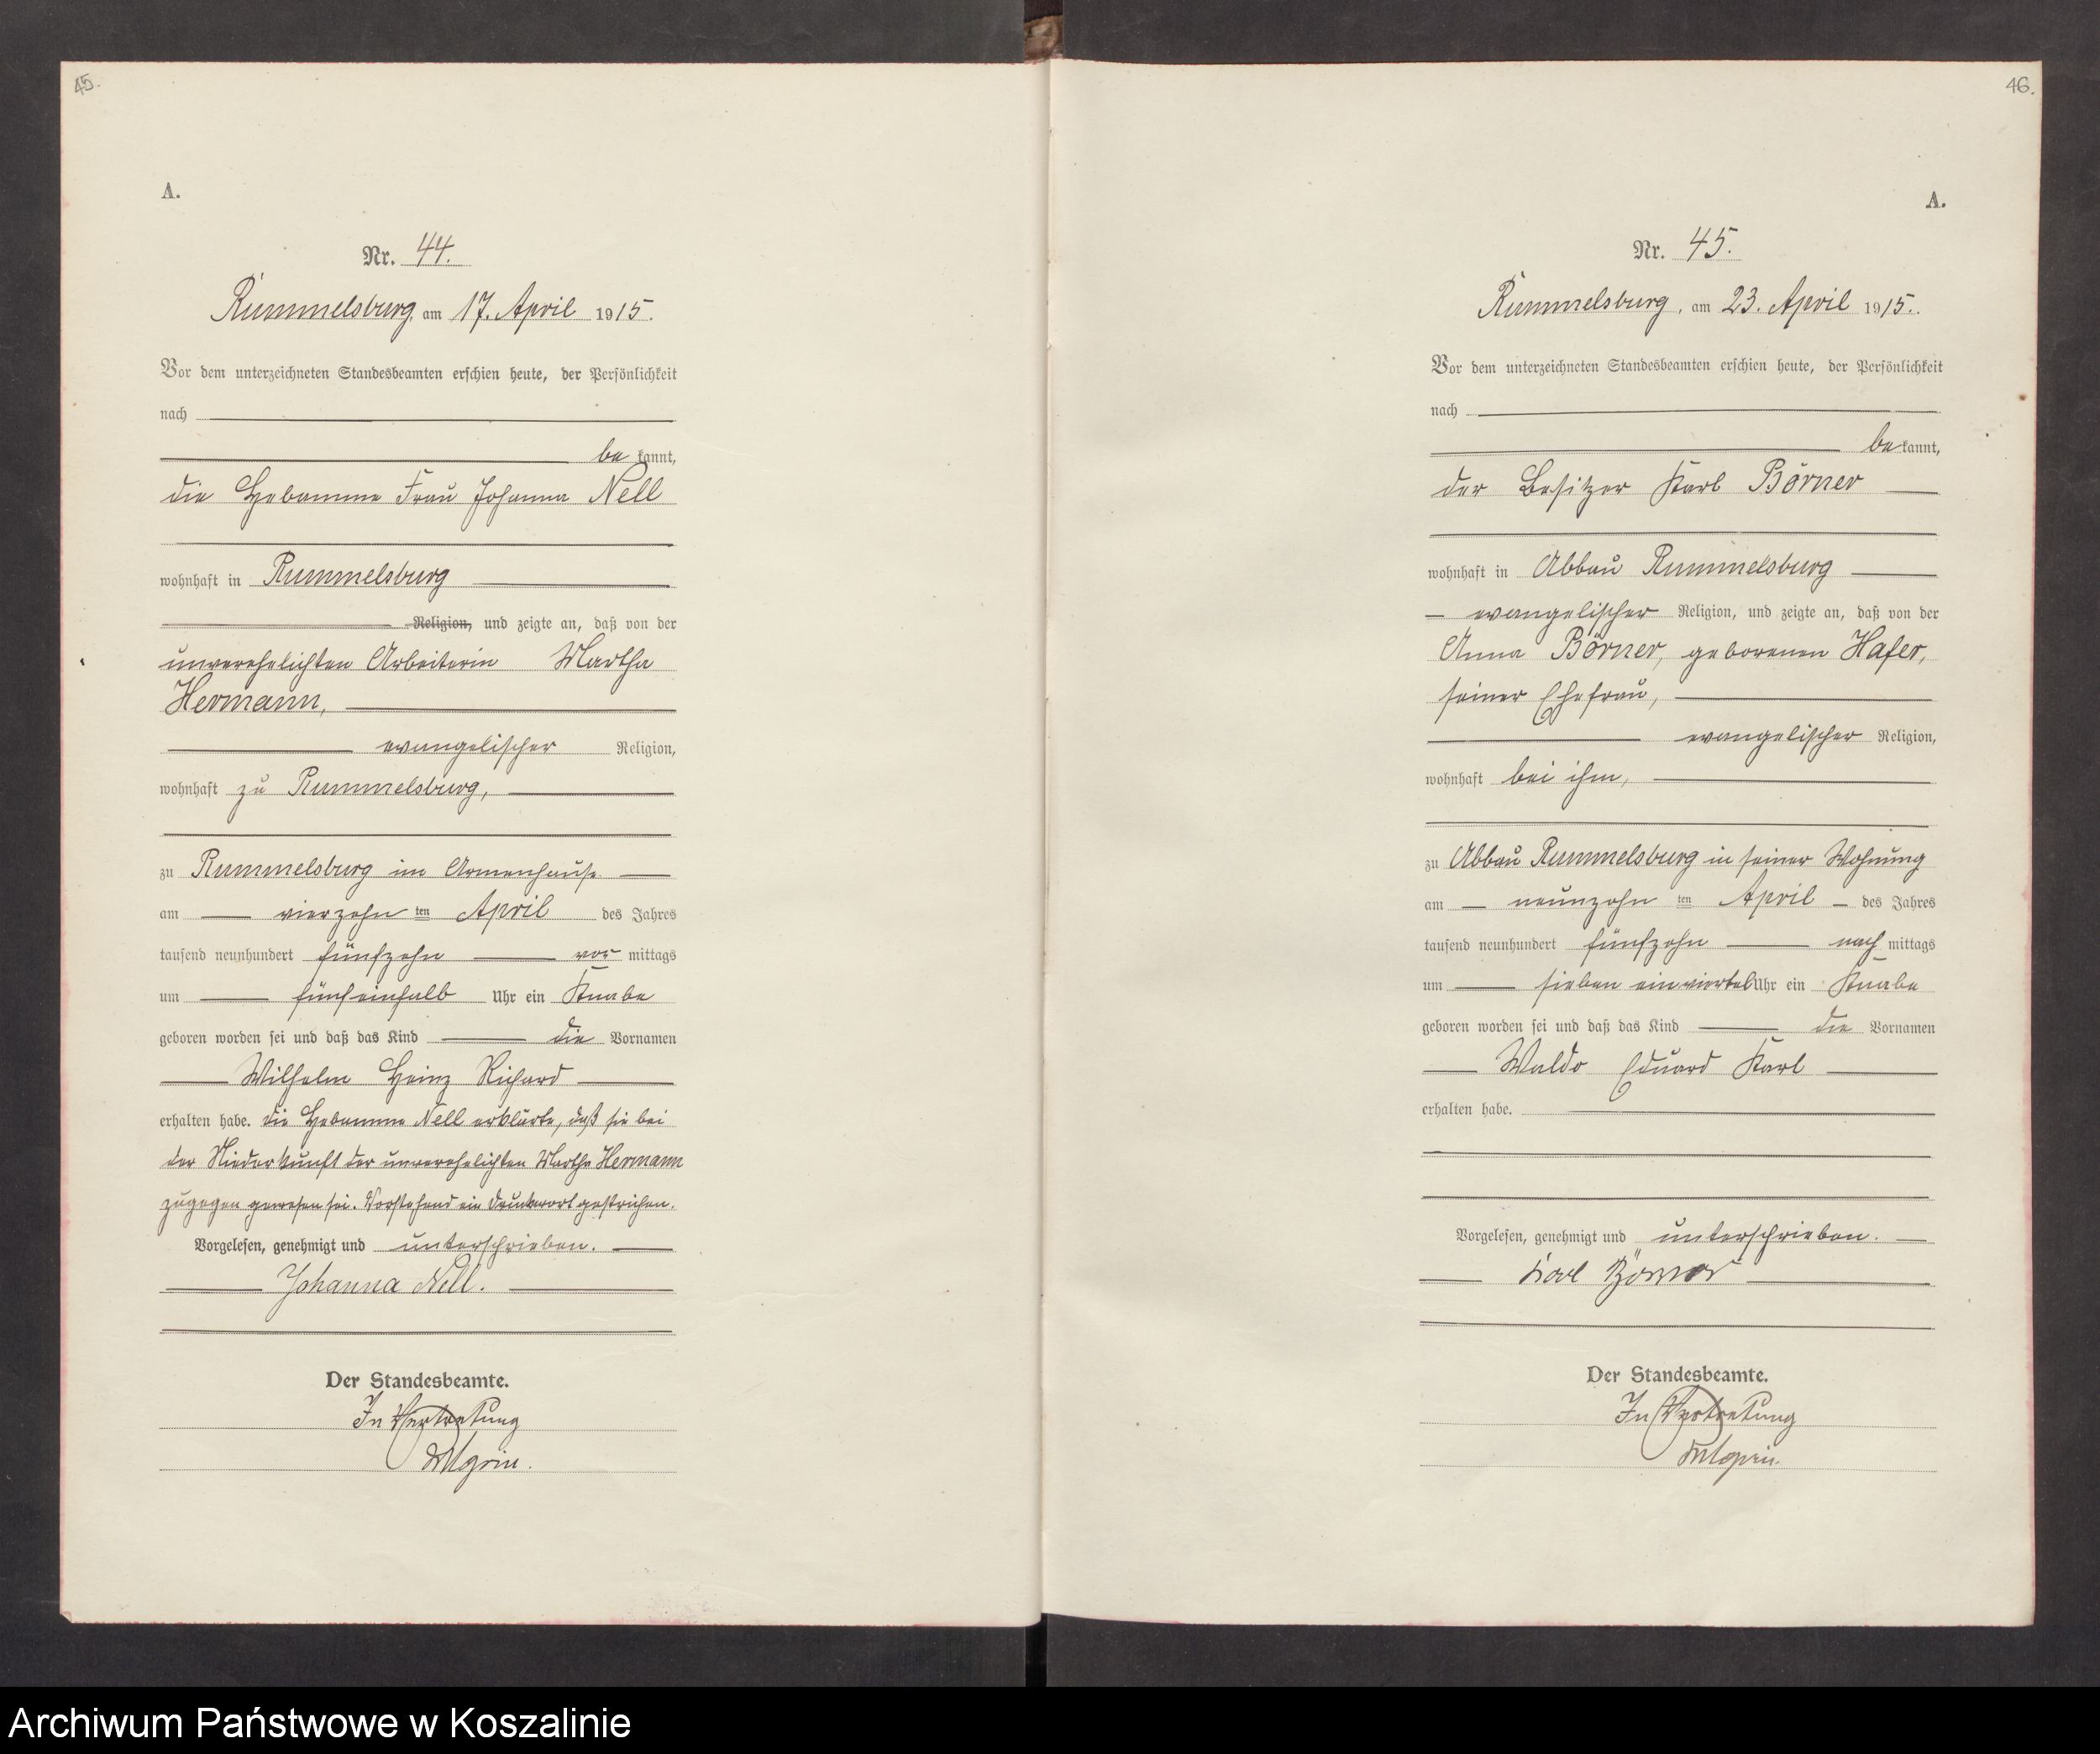 45.
A.
Nr. 44.
Rummelsburg, am 17. April 1915.
Vor dem unterzeichneten Standesbeamten erschien heute, der Persönlichkeit
nach
be kannt,
die Hebamme Frau Johanna Nell
wohnhaft in Rummelsburg
Religion, und zeigte an, daß von der
unverehelichten Arbeiterin Martha
Hermann,
evangelischer Religion,
wohnhaft zu Rummelsburg,
zu Rummelsburg im Armenhause
am vierzehn ten April des Jahres
tausend neunhundert fünfzehn vor mittags
um fünfeinhalb Uhr ein Knabe
geboren worden sei und daß das Kind die Vornamen
Wilhelm Heinz Richard
erhalten habe. Die Hebamme Nell erklärte, daß sie bei
der Niederkunft der unverehelichten Martha Hermann
zugegen gewesen sei. Vorstehend ein Druckwort gestrichen.
Vorgelesen, genehmigt und unterschrieben.
Johanna Nell.
Der Standesbeamte.
In Vertretung
46.
A.
Nr. 45.
Rummelsburg, am 23. April 1915.
Vor dem unterzeichneten Standesbeamten erschien heute, der Persönlichkeit
nach
be kannt,
der Besitzer Karl Börner
wohnhaft in Abbau Rummelsburg
evangelischer Religion, und zeigte an, daß von der
Anna Börner, geborenen Hafer,
seiner Ehefrau,
evangelischer Religion,
wohnhaft bei ihm,
zu Abbau Rummelsburg in seiner Wohnung
am neunzehn ten April des Jahres
tausend neunhundert fünfzehn nach mittags
um sieben einviertel Uhr ein Knabe
geboren worden sei und daß das Kind die Vornamen
Waldo Eduard Karl
erhalten habe.
Vorgelesen, genehmigt und unterschrieben.
Karl Börner
Der Standesbeamte.
In Vertretung
Archiwum Państwowe w Koszalinie